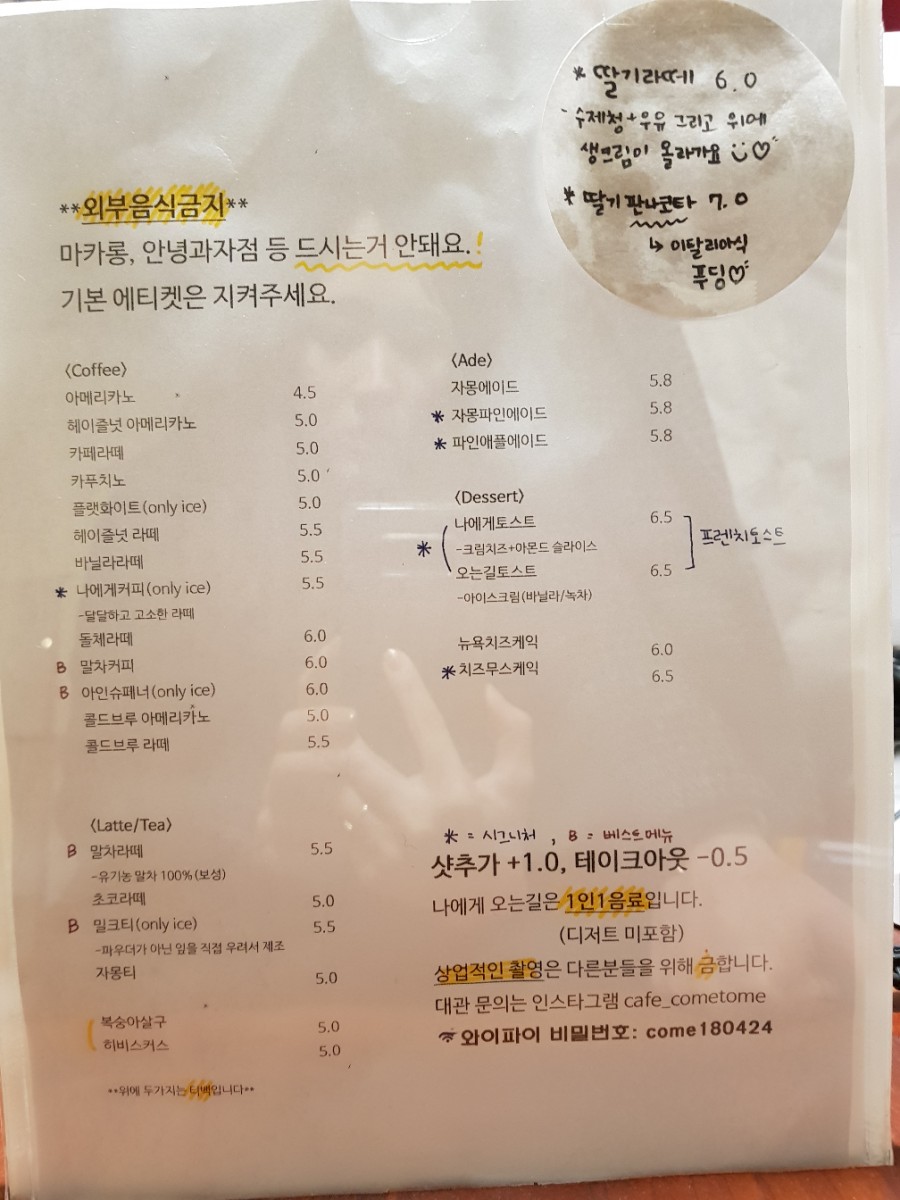 * 딸기라떼 6.0
- 수제청+우유 그리고 위에
생크림이 올라가요
* 딸기 판나코타 7.0
↳ 이탈리아식
푸딩♡
**외부음식금지**
마카롱, 안녕과자점 등 드시는거 안돼요.!
기본 에티켓은 지켜주세요.
<Coffee>
아메리카노 4.5
헤이즐넛 아메리카노 5.0
카페라떼 5.0
카푸치노 5.0
플랫화이트(only ice) 5.0
헤이즐넛 라떼 5.5
바닐라라떼 5.5
* 나에게커피(only ice) 5.5
-달달하고 고소한 라떼
돌체라떼 6.0
B 말차커피 6.0
B 아인슈페너(only ice) 6.0
콜드브루 아메리카노 5.0
콜드브루 라떼 5.5
<Latte/Tea>
B 말차라떼 5.5
-유기농 말차 100%(보성)
초코라떼 5.0
B 밀크티(only ice) 5.5
-파우더가 아닌 잎을 직접 우려서 제조
자몽티 5.0
복숭아살구 5.0
히비스커스 5.0
**위에 두가지는 티백입니다**
<Ade>
자몽에이드 5.8
* 자몽파인에이드 5.8
* 파인애플에이드 5.8
<Dessert>
* 나에게토스트 6.5
-크림치즈+아몬드 슬라이스
프렌치토스트
오는길토스트 6.5
-아이스크림(바닐라/녹차)
뉴욕치즈케익 6.0
* 치즈무스케익 6.5
* = 시그니처 , B = 베스트메뉴
샷추가 +1.0, 테이크아웃 -0.5
나에게 오는길은 1인1음료입니다.
(디저트 미포함)
상업적인 촬영은 다른분들을 위해 금합니다.
대관 문의는 인스타그램 cafe_cometome
와이파이 비밀번호: come180424